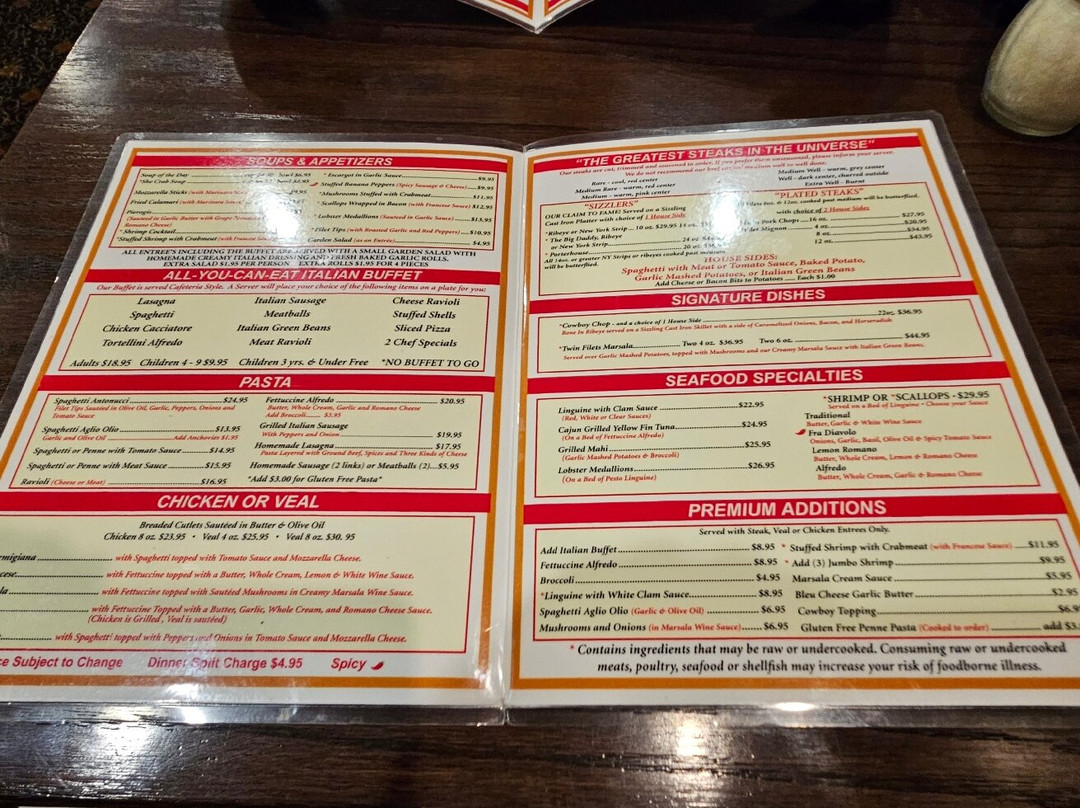 SOUPS & APPETIZERS
Soup of the Day
*She Crab Soup
Mozzarella Sticks (with Marinara
Fried Calamari (with Marinara
Pierogis
(Sauteed in Garlic Butter with
Romano Cheese)
*Shrimp Cocktail
*Stuffed Shrimp with Crabmeat
* Escargot in Garlic Sauce $9.95
Stuffed Banana Peppers (Spicy Sausage & Cheese) $9.95
*Mushrooms Stuffed with Crabmeat $11.95
*Scallops Wrapped in Bacon (with Francese Sauce) $12.95
*Lobster Medallions (Sauteed in Garlic Sauce) $13.95
*Filet Tips (with Roasted Garlic and Red Peppers) $10.95
Garden Salad (as an Entrée) $4.95
ALL ENTREE'S INCLUDING THE BUFFET ARE SERVED WITH A SMALL GARDEN SALAD WITH
HOMEMADE CREAMY ITALIAN DRESSING AND FRESH BAKED GARLIC ROLLS.
EXTRA SALAD $1.95 PER PERSON EXTRA ROLLS $1.95 FOR 4 PIECES
ALL-YOU-CAN-EAT ITALIAN BUFFET
Our Buffet is served Cafeteria Style. A Server will place your choice of the following items on a plate for you:
Lasagna Italian Sausage Cheese Ravioli
Spaghetti Meatballs Stuffed Shells
Chicken Cacciatore Italian Green Beans Sliced Pizza
Tortellini Alfredo Meat Ravioli 2 Chef Specials
Adults $18.95 Children 4 - 9 $9.95 Children 3 yrs. & Under Free *NO BUFFET TO GO
PASTA
Spaghetti Antonucci $24.95
Filet Tips Sautéed in Olive Oil, Garlic, Peppers, Onions and
Tomato Sauce
Spaghetti Aglio Olio $13.95
Garlic and Olive Oil Add Anchovies $1.95
Spaghetti or Penne with Tomato Sauce $14.95
Spaghetti or Penne with Meat Sauce $15.95
Ravioli (Cheese or Meat) $16.95
Fettuccine Alfredo $20.95
Butter, Whole Cream, Garlic and Romano Cheese
Add Broccoli $3.95
Grilled Italian Sausage
With Peppers and Onion $19.95
Homemade Lasagna $17.95
Pasta Layered with Ground Beef, Spices and Three Kinds of Cheese
Homemade Sausage (2 links) or Meatballs (2)...$5.95
*Add $3.00 for Gluten Free Pasta*
CHICKEN OR VEAL
Breaded Cutlets Sautéed in Butter & Olive Oil
Chicken 8 oz. $23.95 • Veal 4 oz. $25.95 • Veal 8 oz. $30.95
rmigiana with Spaghetti topped with Tomato Sauce and Mozzarella Cheese.
cese with Fettuccine topped with a Butter, Whole Cream, Lemon & White Wine Sauce.
la with Fettuccine topped with Sautéed Mushrooms in Creamy Marsala Wine Sauce.
with Fettuccine Topped with a Butter, Garlic, Whole Cream, and Romano Cheese Sauce.
(Chicken is Grilled, Veal is sautéed)
with Spaghetti topped with Peppers and Onions in Tomato Sauce and Mozzarella Cheese.
ce Subject to Change Dinner Split Charge $4.95 Spicy
"THE GREATEST STEAKS IN THE UNIVERSE"
Our steaks are cut, trimmed and seasoned to order. If you prefer them unseasoned, please inform your server.
We do not recommend our beef cut well to well done.
Rare - cool, red center
Medium Rare - warm, red center
Medium - warm, pink center
Medium Well - warm, grey center
Well - dark center, charred outside
Extra Well - Burnt
"SIZZLERS"
OUR CLAIM TO FAME! Served on a Sizzling
Cast Iron Platter with choice of 1 House Side
*Ribeye or New York Strip... 10 oz. $29.95
*The Big Daddy, Ribeye
or New York Strip 24 oz
* Porterhouse
All 14oz. or greater NY Strips or ribeyes cooked past medium
will be butterflied.
"PLATED STEAKS"
Filets 8oz. & 12oz. cooked past medium will be butterflied.
with choice of 2 House Sides
Pork Chops 16 oz. $27.95
Filet Mignon 4 oz.
8 oz. $34.95
12 oz. $43.95
HOUSE SIDES:
Spaghetti with Meat or Tomato Sauce, Baked Potato,
Garlic Mashed Potatoes, or Italian Green Beans
Add Cheese or Bacon Bits to Potatoes Each $1.00
SIGNATURE DISHES
*Cowboy Chop - and a choice of 1 House Side 22oz. $36.95
Bone In Ribeye served on a Sizzling Cast Iron Skillet with a side of Caramelized Onions, Bacon, and Horseradish
*Twin Filets Marsala Two 4 oz. $36.95 Two 6 oz. $44.95
Served over Garlic Mashed Potatoes, topped with Mushrooms and our Creamy Marsala Sauce with Italian Green Beans.
SEAFOOD SPECIALTIES
Linguine with Clam Sauce $22.95
(Red, White or Clear Sauces)
Cajun Grilled Yellow Fin Tuna $24.95
(On a Bed of Fettuccine Alfredo)
Grilled Mahi $25.95
(Garlic Mashed Potatoes & Broccoli)
Lobster Medallions $26.95
(On a Bed of Pesto Linguine)
*SHRIMP OR *SCALLOPS - $29.95
Served on a Bed of Linguine • Choose your Sauce
Traditional
Butter, Garlic & White Wine Sauce
Fra Diavolo
Onions, Garlic, Basil, Olive Oil & Spicy Tomato Sauce
Lemon Romano
Butter, Whole Cream, Lemon & Romano Cheese
Alfredo
Butter, Whole Cream, Garlic & Romano Cheese
PREMIUM ADDITIONS
Served with Steak, Veal or Chicken Entrees Only.
Add Italian Buffet $8.95
Fettuccine Alfredo $8.95
Broccoli $4.95
*Linguine with White Clam Sauce $8.95
Spaghetti Aglio Olio (Garlic & Olive Oil) $6.95
Mushrooms and Onions (in Marsala Wine Sauce) $6.95
* Stuffed Shrimp with Crabmeat (with Francese Sauce) $11.95
* Add (3) Jumbo Shrimp $9.95
Marsala Cream Sauce $5.95
Bleu Cheese Garlic Butter $2.95
Cowboy Topping $6.9
Gluten Free Penne Pasta (Cooked to order) add $3.
* Contains ingredients that may be raw or undercooked. Consuming raw or undercooked
meats, poultry, seafood or shellfish may increase your risk of foodborne illness.